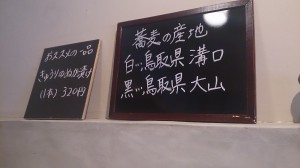 おススメの一品
きゅうりのぬか漬け
(1本) 320円
蕎麦の産地
白い鳥取県 溝口
黒い鳥取県 大山